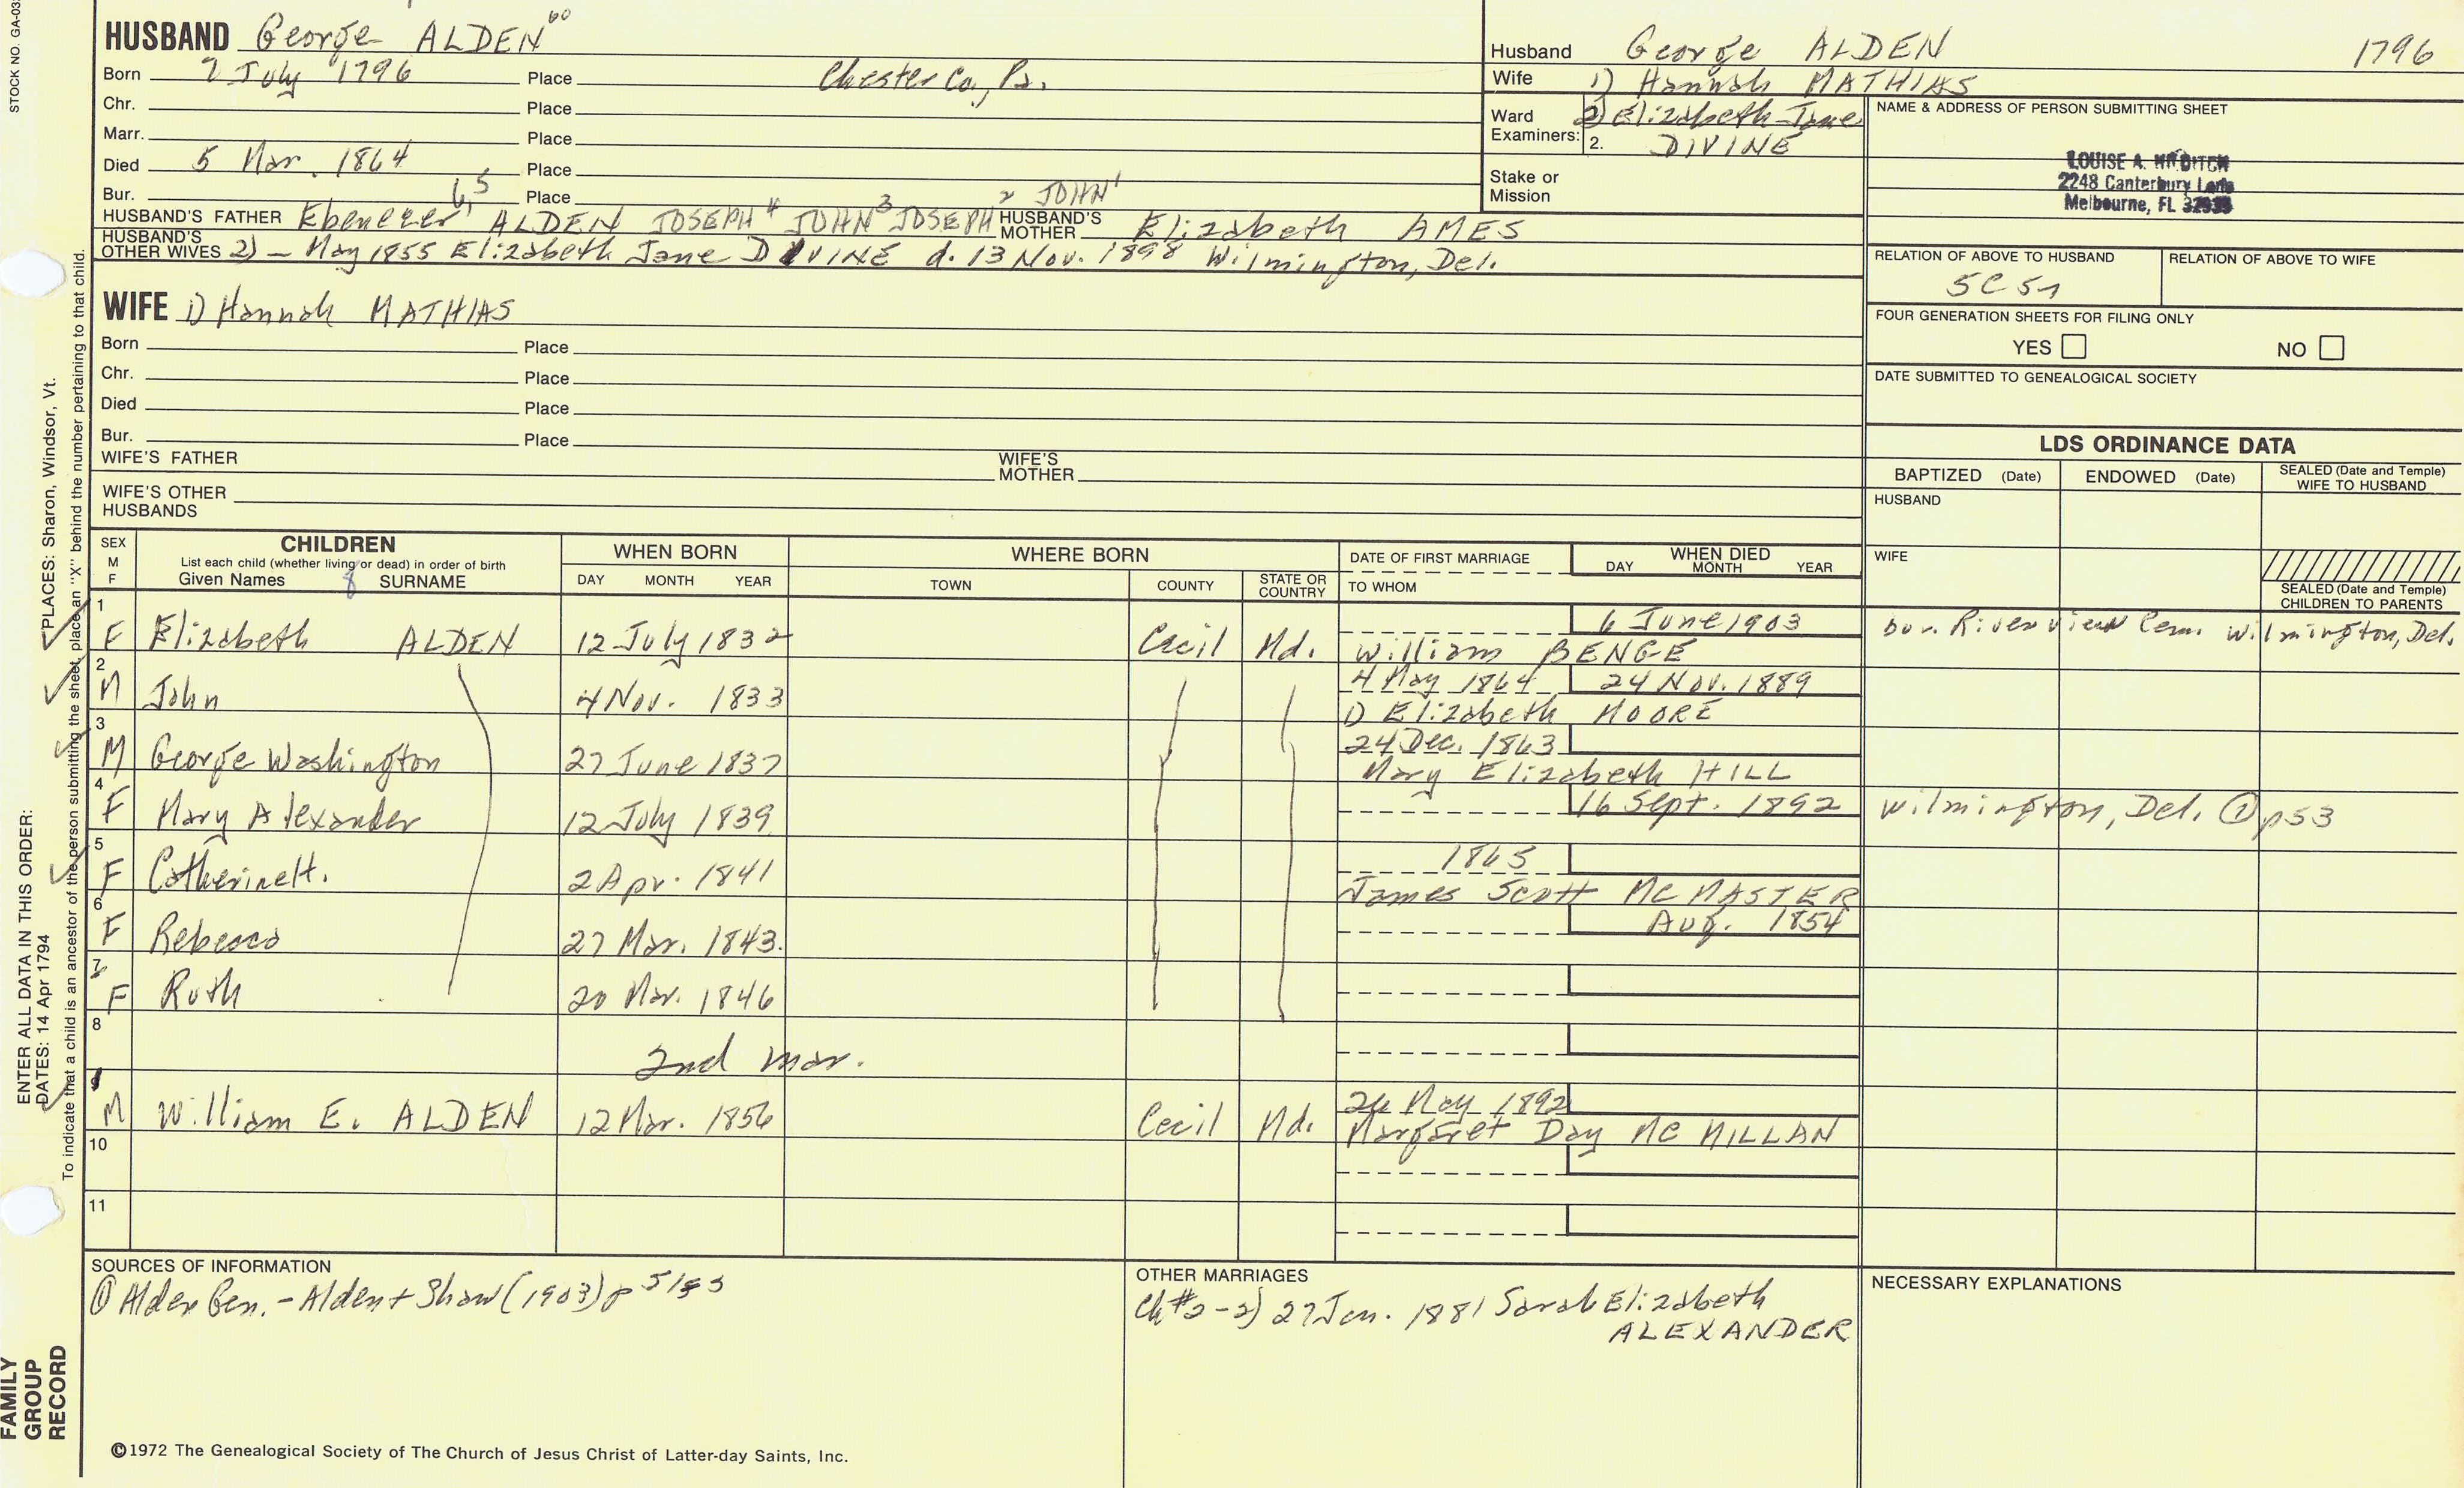 STOCK NO. GA-03
HUSBAND George ALDEN
Born 7 July 1796 Place Chester Co., Pa.
Chr. Place
Marr. Place
Died 5 Mar. 1864 Place
Bur. Place
HUSBAND'S FATHER Ebenezer ALDEN JOSEPH⁴ JOHN³ JOSEPH² JOHN¹ HUSBAND'S MOTHER Elizabeth AMES
HUSBAND'S OTHER WIVES 2) – May 1855 Elizabeth Jane DIVINE d. 13 Nov. 1898 Wilmington, Del.
WIFE 1) Hannah MATHIAS
Born Place
Chr. Place
Died Place
Bur. Place
WIFE'S FATHER WIFE'S MOTHER
WIFE'S OTHER HUSBANDS
Husband George ALDEN 1796
Wife 1) Hannah MATHIAS
Ward Examiners: 2) Elizabeth Jane
2. DIVINE
Stake or Mission
NAME & ADDRESS OF PERSON SUBMITTING SHEET
LOUISE A.
2248 Canterbury Lane
Melbourne, FL
RELATION OF ABOVE TO HUSBAND RELATION OF ABOVE TO WIFE
FOUR GENERATION SHEETS FOR FILING ONLY
YES NO
DATE SUBMITTED TO GENEALOGICAL SOCIETY
LDS ORDINANCE DATA
BAPTIZED (Date) ENDOWED (Date) SEALED (Date and Temple) WIFE TO HUSBAND
HUSBAND
WIFE
SEALED (Date and Temple) CHILDREN TO PARENTS
SEX M F
CHILDREN
List each child (whether living or dead) in order of birth
Given Names SURNAME
WHEN BORN
DAY MONTH YEAR
WHERE BORN
TOWN COUNTY STATE OR COUNTRY
DATE OF FIRST MARRIAGE
TO WHOM
WHEN DIED
DAY MONTH YEAR
1 F Elizabeth ALDEN 12 July 1832 Cecil Md. 6 June 1903 bur. Riverview Cem. Wilmington, Del.
William BENGE
2 M John 4 Nov. 1833 4 May 1864 24 Nov. 1889
1) Elizabeth MOORE
3 M George Washington 27 June 1837 24 Dec. 1863
Mary Elizabeth HILL
4 F Mary Alexander 12 July 1839 16 Sept. 1892 Wilmington, Del. ① p53
5 F Catherine H. 2 Apr. 1841 1865
James Scott McMASTER
6 F Rebecca 27 Mar. 1843 Aug. 1854
7 F Ruth 20 Mar. 1846
8
2nd mar.
9 M William E. ALDEN 12 Mar. 1856 Cecil Md. 26 May 1892
Margaret Day McMILLAN
10
11
SOURCES OF INFORMATION
① Alden Gen. – Alden + Shaw (1903) p
OTHER MARRIAGES
Ch #2 – 2) 27 Jan. 1881 Sarah Elizabeth
ALEXANDER
NECESSARY EXPLANATIONS
©1972 The Genealogical Society of The Church of Jesus Christ of Latter-day Saints, Inc.
ENTER ALL DATA IN THIS ORDER:
DATES: 14 Apr 1794 PLACES: Sharon, Windsor, Vt.
To indicate that a child is an ancestor of the person submitting the sheet, place an "X" behind the number pertaining to that child.
FAMILY
GROUP
RECORD